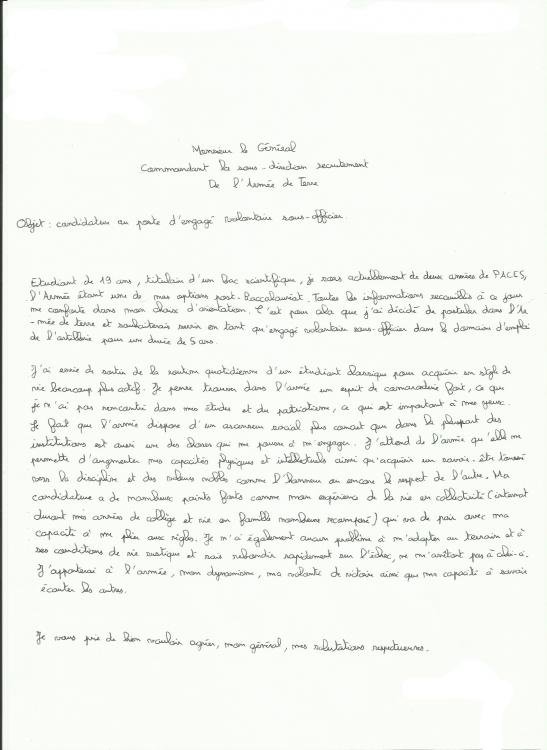 Monsieur le Général
Commandant la sous-direction recrutement
De l'Armée de Terre
Objet : candidature au poste d'engagé volontaire sous-officier.
Etudiant de 19 ans, titulaire d'un Bac scientifique, je sors actuellement de deux années de PACES,
l'Armée étant une de mes options post-Baccalauréat. Toutes les informations recueillis à ce jour
me conforte dans mon choix d'orientation. C'est pour cela que j'ai décidé de postuler dans l'Ar
-mée de terre et souhaiterais servir en tant qu'engagé volontaire sous-officier dans le domaine d'emploi
de l'artillerie pour une durée de 5 ans.
J'ai envie de sortir de la routine quotidienne d'un étudiant classique pour acquérir un style de
vie beaucoup plus actif. Je pense trouver dans l'armée un esprit de camaraderie fort, ce que
je n'ai pas rencontré dans mes études et du patriotisme, ce qui est important à mes yeux.
Le fait que l'armée dispose d'un ascenseur social plus concret que dans la plupart des
institutions est aussi une des choses qui me pousse à m'engager. J'attend de l'armée qu'elle me
permette d'augmenter mes capacités physiques et intellectuels ainsi qu'acquérir un savoir-être tourné
vers la discipline et des valeurs nobles comme l'honneur ou encore le respect de l'autre. Ma
candidature a de nombreux points forts comme mon expérience de la vie en collectivité (internat
durant mes années de collège et vie en famille nombreuse recomposé) qui va de pair avec ma
capacité à me plier aux règles. Je n'ai également aucun problème à m'adapter au terrain et à
ses conditions de vie rustique et sais rebondir rapidement sur l'échec, ne m'arrêtant pas à celui-ci.
J'apporterai à l'armée, mon dynamisme, ma volonté de victoire ainsi que ma capacité à savoir
écouter les autres.
Je vous prie de bien vouloir agréer, mon général, mes salutations respectueuses.